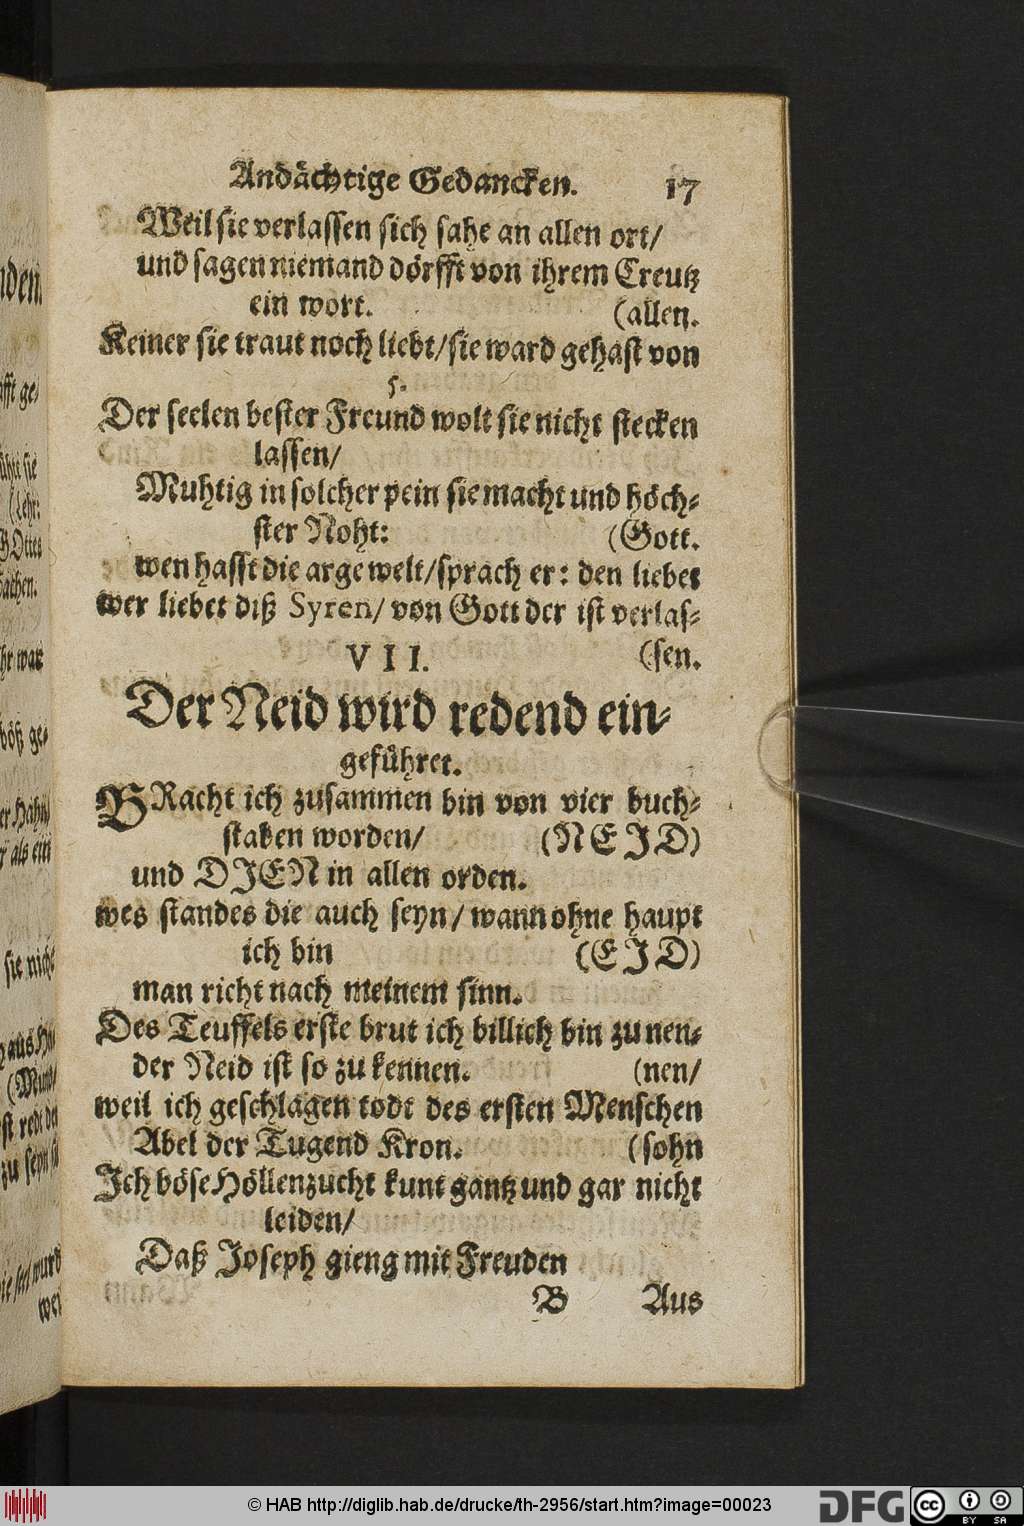 Andächtige Gedancken. 17
Weil sie verlassen sich sahe an allen ort/
und sagen niemand dörfft von ihrem Creutz
ein wort. (allen.
Keiner sie traut noch liebt/sie ward gehast von
5.
Der seelen bester Freund wolt sie nicht stecken
lassen/
Muhtig in solcher pein sie macht und höch-
ster Noht: (Gott.
wen hasst die arge welt/sprach er: den liebet
wer liebet diß Syren/ von Gott der ist verlas-
VII. (sen.
Der Neid wird redend ein-
geführet.
GRacht ich zusammen bin von vier buch-
staben worden/ (NEJD)
und DJEN in allen orden.
wes standes die auch seyn/ wann ohne haupt
ich bin (EJD)
man richt nach meinem sinn.
Des Teuffels erste brut ich billich bin zu nen-
der Neid ist so zu kennen. (nen/
weil ich geschlagen todt des ersten Menschen
Abel der Tugend Kron. (sohn
Jch böse Höllenzucht kunt gantz und gar nicht
leiden/
Daß Joseph gieng mit Freuden
B Aus
© HAB http://diglib.hab.de/drucke/th-2956/start.htm?image=00023
DFG
cc BY SA